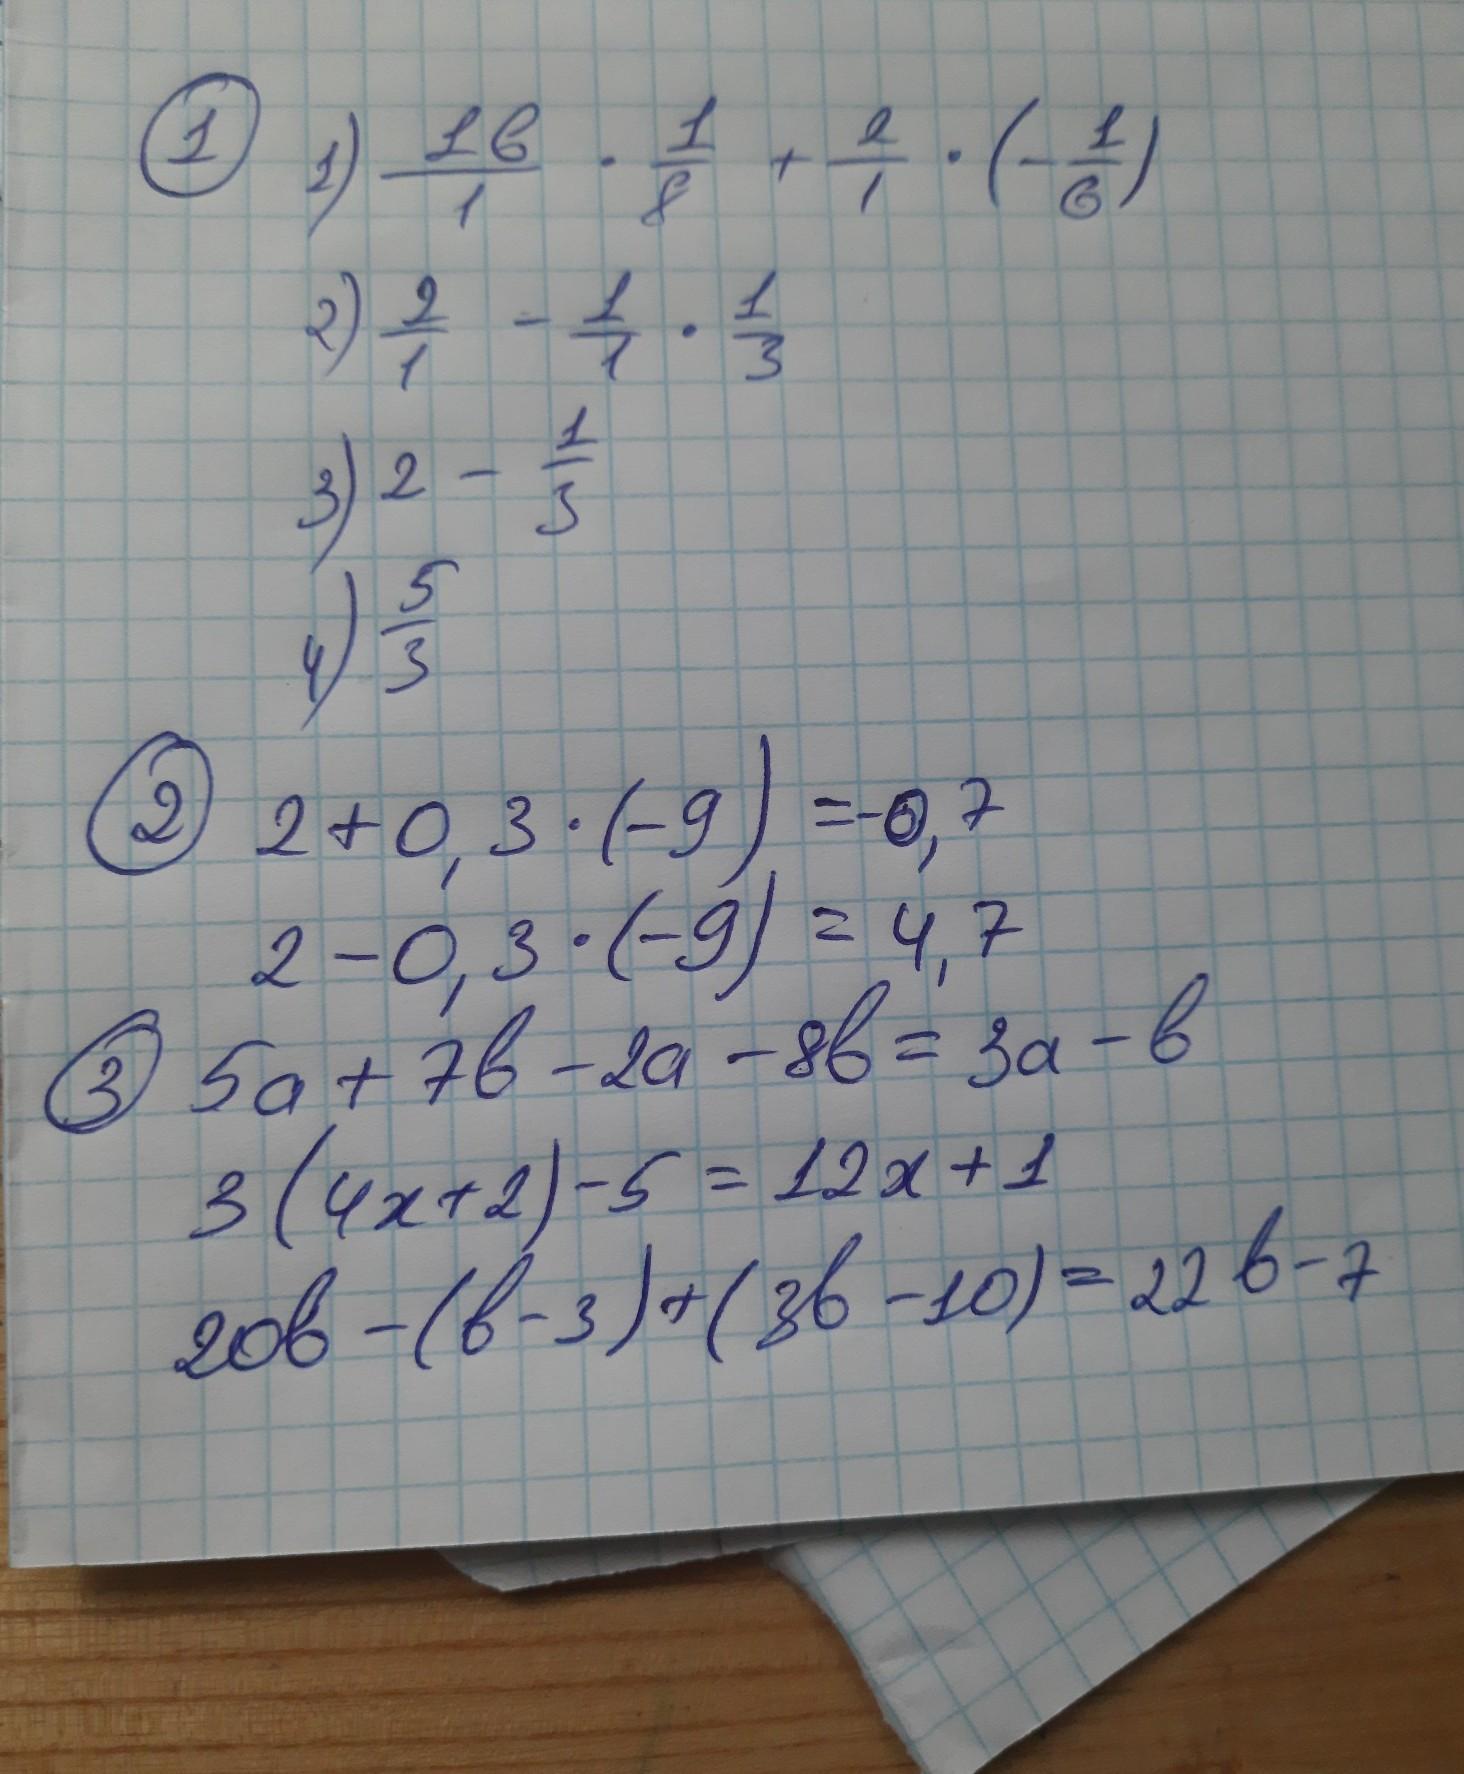 1 1) 16/1 · 1/8 + 2/1 · (-1/6)
2) 2/1 - 1/1 · 1/3
3) 2 - 1/3
4) 5/3
2 2+0,3·(-9) =-0,7
2-0,3·(-9) = 4,7
3 5a+7b-2a-8b=3a-b
3(4x+2)-5=12x+1
20b-(b-3)+(3b-10)=22b-7